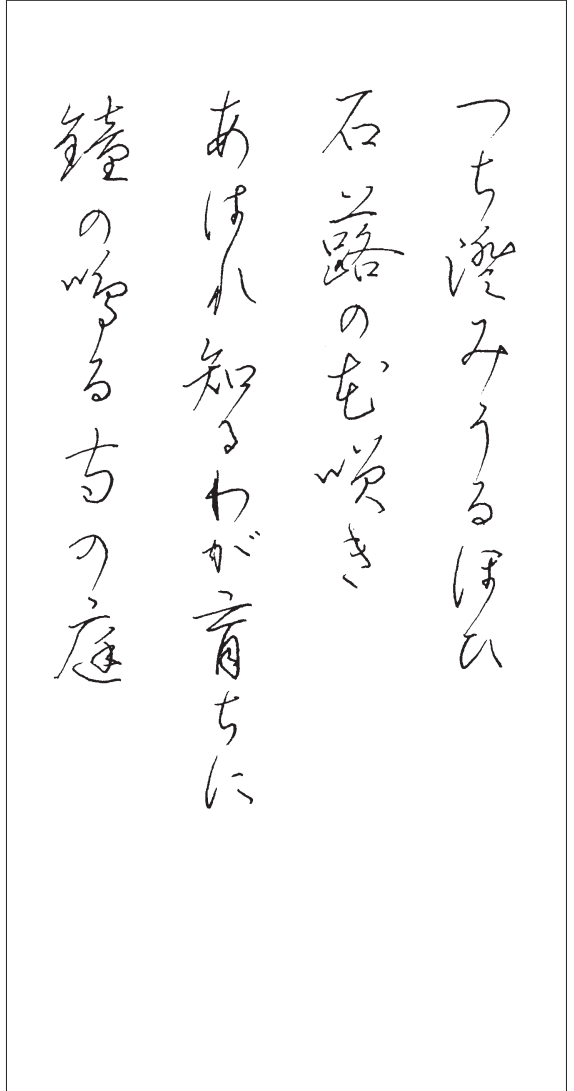 つち澄みうるほひ
石蕗の花咲き
あはれ知るわが育ちに
鐘の鳴る寺の庭